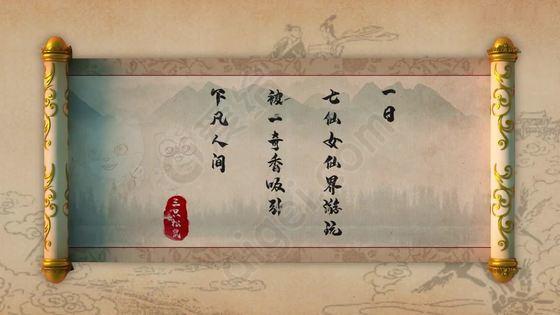 一日
七仙女仙界游玩
被一奇香吸引
下凡人间
三只松鼠